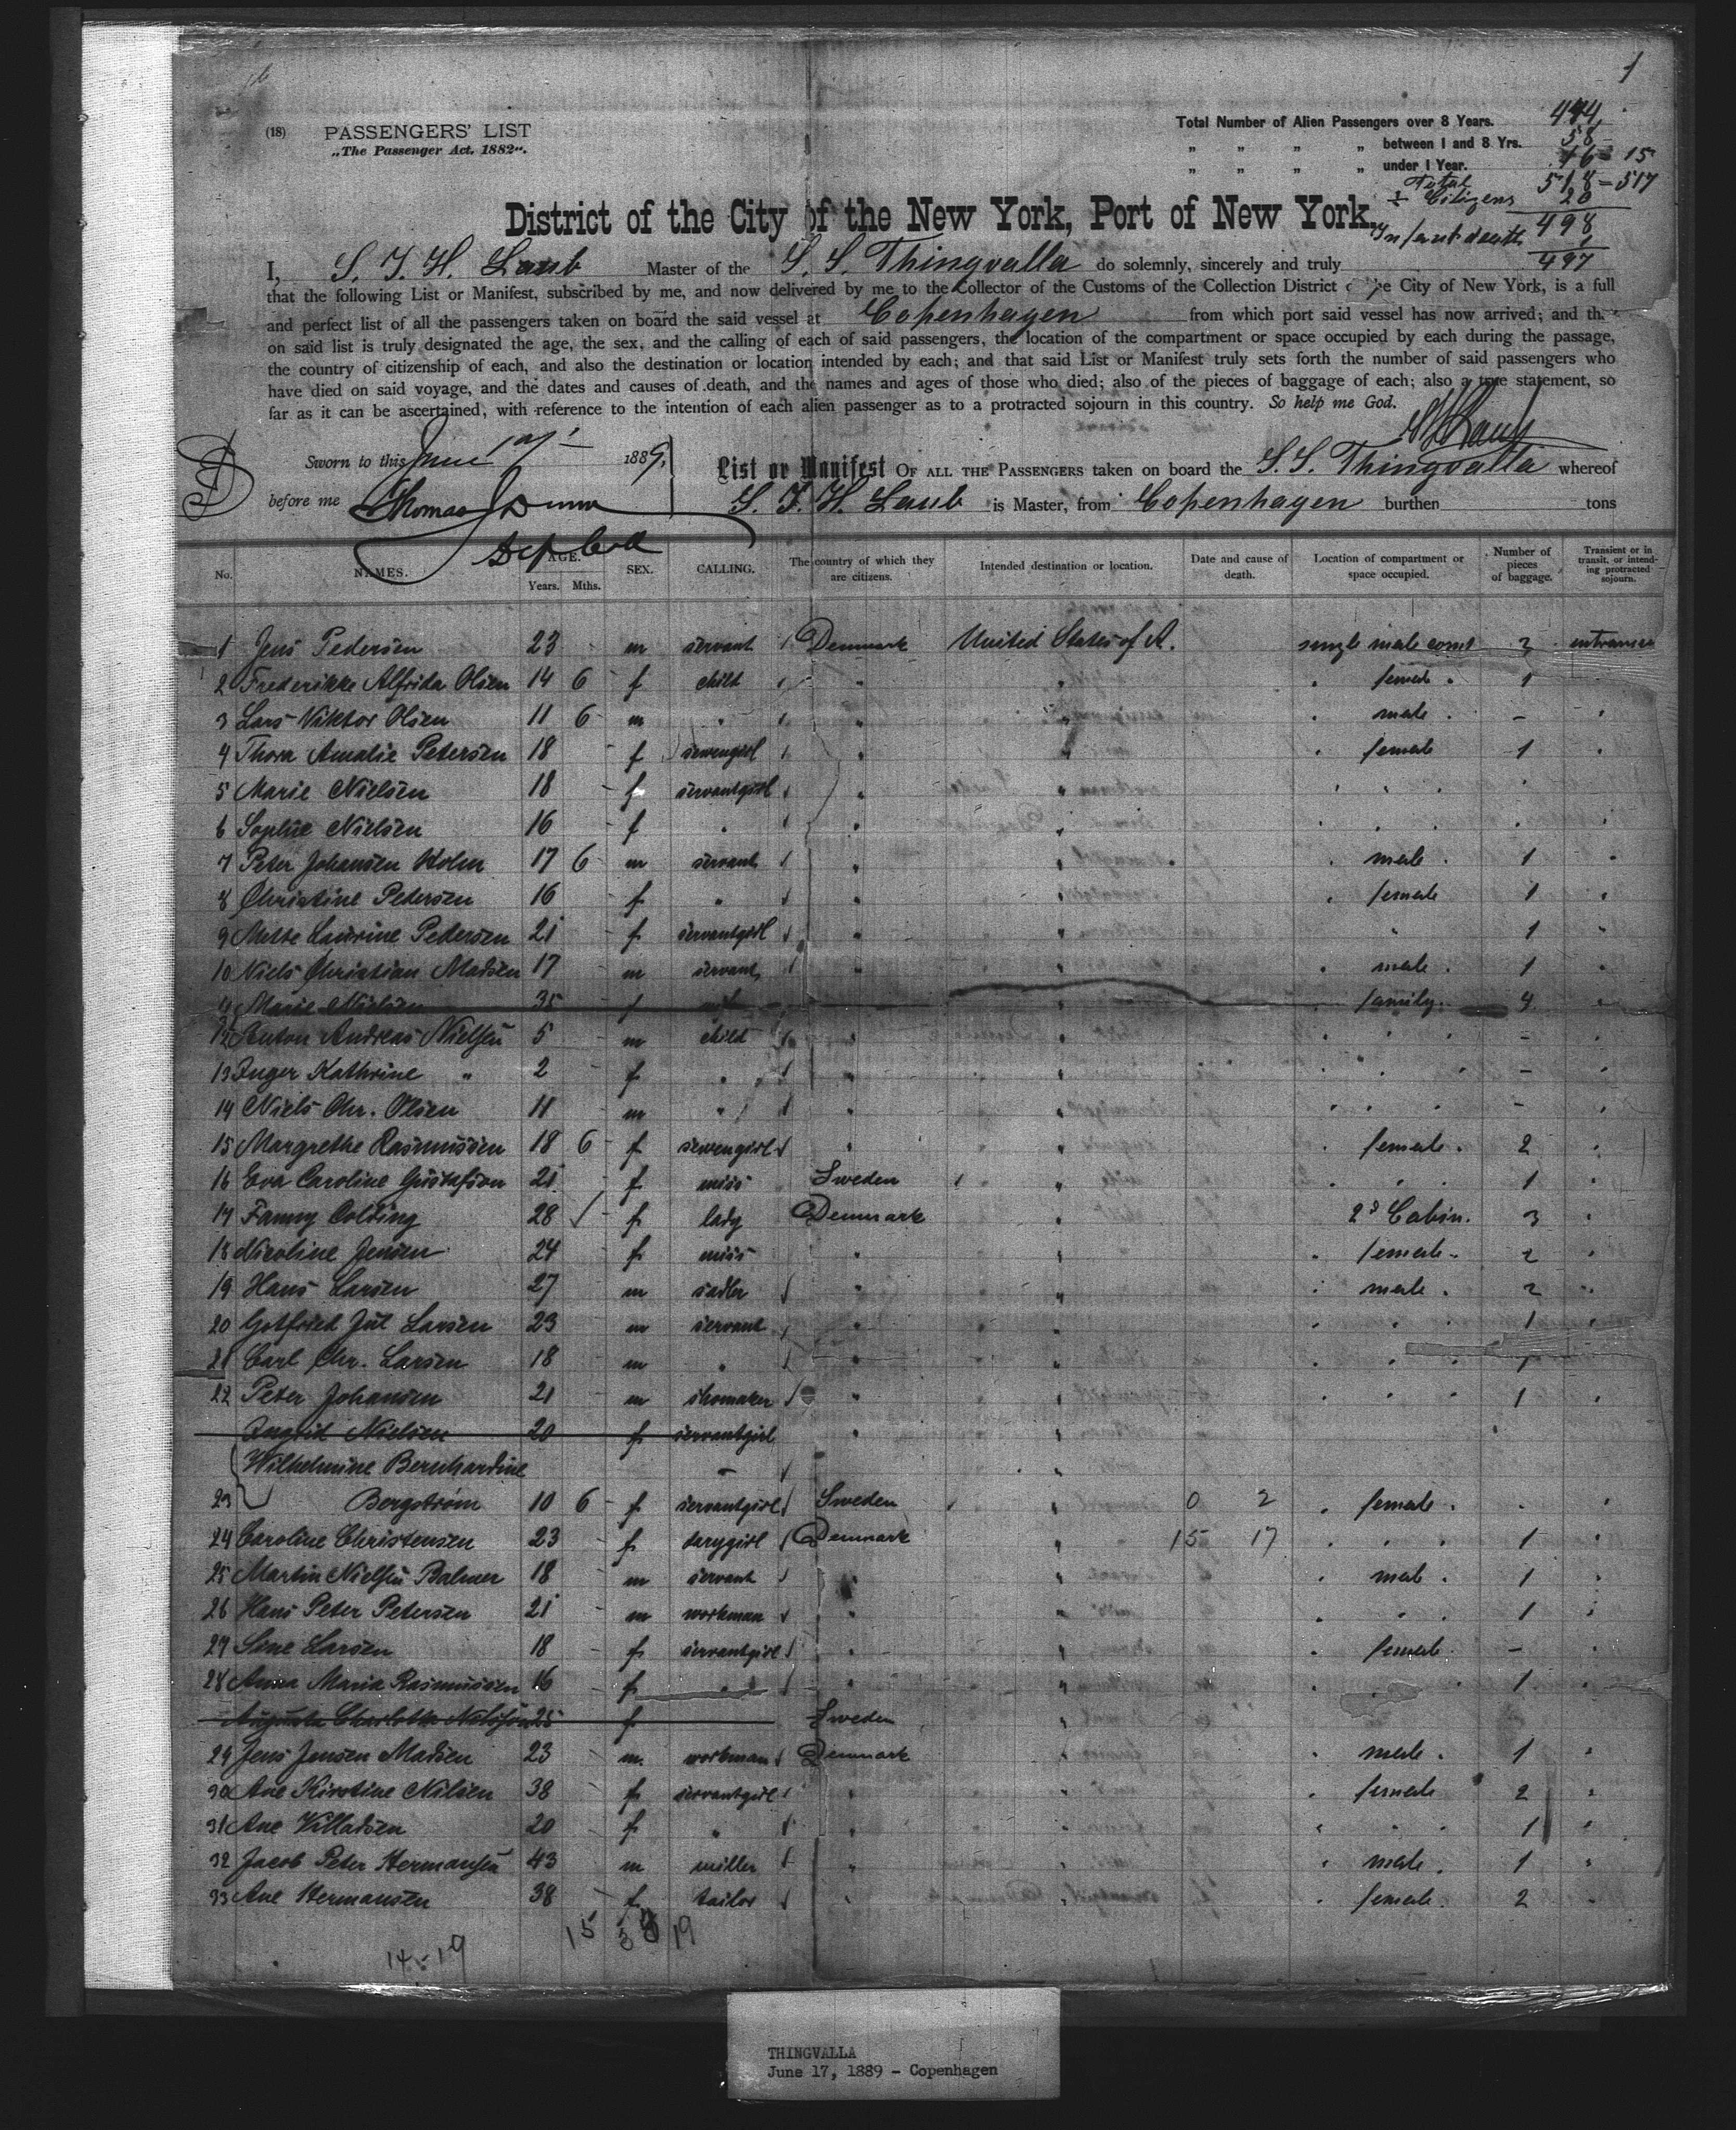 1
(18) PASSENGERS' LIST
„The Passenger Act. 1882“.
Total Number of Alien Passengers over 8 Years. 444
„ „ „ „ between 1 and 8 Yrs. 58
„ „ „ „ under 1 Year. 16 = 15
Total 518 - 517
÷ Citizens 20
498
Infant death 1
497
District of the City of the New York, Port of New York.
I, S. T. H. Laub Master of the S. S. Thingvalla do solemnly, sincerely and truly
that the following List or Manifest, subscribed by me, and now delivered by me to the Collector of the Customs of the Collection District City of New York, is a full
and perfect list of all the passengers taken on board the said vessel at Copenhagen from which port said vessel has now arrived; and th
on said list is truly designated the age, the sex, and the calling of each of said passengers, the location of the compartment or space occupied by each during the passage,
the country of citizenship of each, and also the destination or location intended by each; and that said List or Manifest truly sets forth the number of said passengers who
have died on said voyage, and the dates and causes of death, and the names and ages of those who died; also of the pieces of baggage of each; also a true statement, so
far as it can be ascertained, with reference to the intention of each alien passenger as to a protracted sojourn in this country. So help me God.
Laub
Sworn to this June 17 1889.
before me Thomas Dunn
Dep Coll
List or Manifest OF ALL THE PASSENGERS taken on board the S. S. Thingvalla whereof
S. T. H. Laub is Master, from Copenhagen burthen tons
No. NAMES. AGE. Years. Mths. SEX. CALLING. The country of which they are citizens. Intended destination or location. Date and cause of death. Location of compartment or space occupied. Number of pieces of baggage. Transient or in transit, or intending protracted sojourn.
1 Jens Pedersen 23 - m servant Denmark United States of A. single male comt 3
2 Frederikke Alfrida Olsen 14 6 - f child " " " female " 1
3 Lars Viktor Olsen 11 6 - m " " " " male " - "
4 Thora Amalie Petersen 18 - f sewengirl " " " female 1 "
5 Marie Nielsen 18 - f servantgirl " " " " " "
6 Sophie Nielsen 16 - f " " " " " " " "
7 Peter Johansen Holm 17 6 - m servant " " " male " 1 "
8 Christine Petersen 16 - f " " " " female 1 "
9 Mette Laurine Pedersen 21 - f servantgirl " " " 1 "
10 Niels Christian Madsen 17 - m servant " " " male " 1 "
11 Marie Nielsen 35 f " " family " 4 "
12 Anton Andreas Nielsen 5 - m child " " " " " - "
13 Inger Kathrine " 2 - f " " " " " " - "
14 Niels Chr. Olsen 11 - m " " " " " " - "
15 Margrethe Rasmussen 18 6 - f sewengirl " " " female " 2 "
16 Eva Caroline Gustafson 21 - f miss Sweden " " " " 1 "
17 Fanny Colding 28 ✓ - f lady Denmark " 2d Cabin. 3 "
18 Nicoline Jensen 24 - f miss " " " female " 2 "
19 Hans Larsen 27 - m sadler " " " male " 2 "
20 Gotfried Jul Larsen 23 - m servant " " " " " 1 "
21 Carl Chr. Larsen 18 - m " " " " " " 1
22 Peter Johansen 21 - m shomaker " " " " " 1 "
Ingrid Nielsen 20 f servantgirl " "
Wilhelmine Bernhardine
23 Bergström 10 6 - f servantgirl Sweden " 0 2 " female " " "
24 Caroline Christensen 23 - f darygirl Denmark " 15 17 " " " 1 "
25 Martin Nielsen Balmer 18 - m servant " " " male " 1 "
26 Hans Peter Petersen 21 - m workman " " " " " 1 "
27 Sine Larsen 18 - f servantgirl " " " female - "
28 Anna Maria Rasmussen 16 - f " " " 1 "
Augusta Charlotte Nilsson 25 f Sweden "
29 Jens Jensen Madsen 23 - m workman Denmark " " male " 1 "
30 Ane Kirstine Nilsen 38 - f servantgirl " " " female 2 "
31 Ane Villadsen 20 - f " " " " " " 1 "
32 Jacob Peter Hermansen 43 m miller " " " male " 1 "
33 Ane Hermansen 38 - f tailor " " " female " 2 "
15 19
14 - 19
THINGVALLA
June 17, 1889 - Copenhagen